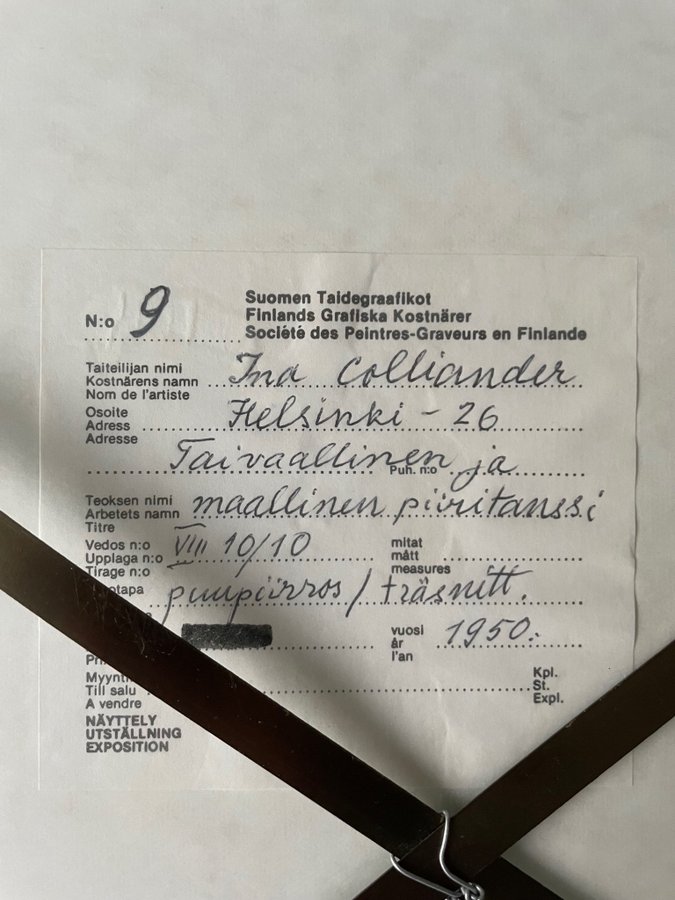 N:o 9
Suomen Taidegraafikot
Finlands Grafiska Kostnärer
Société des Peintres-Graveurs en Finlande
Taiteilijan nimi
Kostnärens namn Ina Colliander
Nom de l'artiste
Osoite
Adress Helsinki - 26
Adresse
Taivaallinen ja
Puh. n:o
Teoksen nimi
Arbetets namn maallinen piiritanssi
Titre
Vedos n:o VIII 10/10
Upplaga n:o
Tirage n:o
mitat
mått
measures
puupiirros / träsnitt.
vuosi
år 1950.
l'an
Myynti
Till salu
A vendre
Kpl.
St.
Expl.
NÄYTTELY
UTSTÄLLNING
EXPOSITION